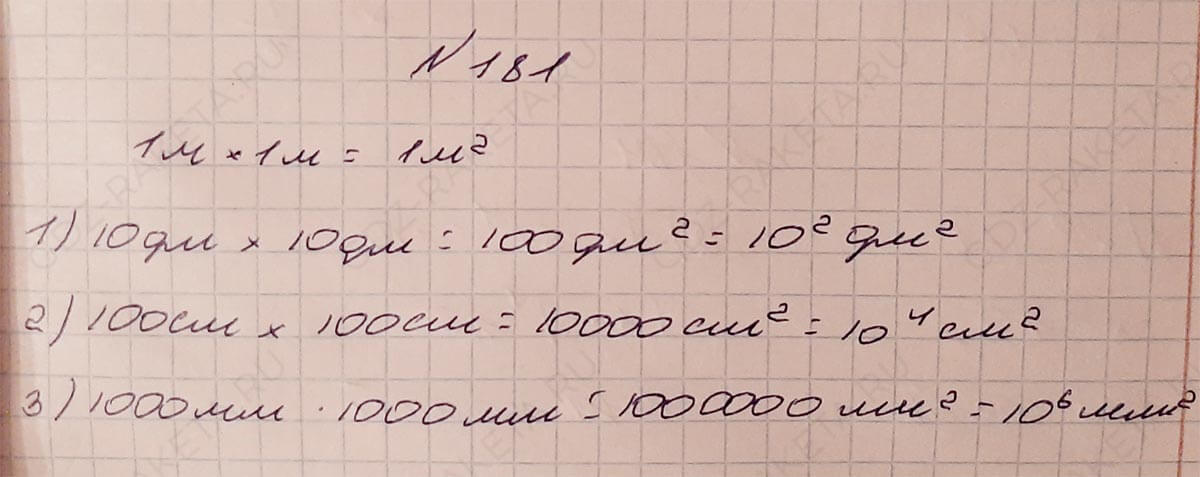 N 181
1м × 1м = 1м²
1) 10дм × 10дм = 100дм² = 10² дм²
2) 100см × 100см = 10000см² = 10⁴ см²
3) 1000мм · 1000мм = 1000000 мм² = 10⁶ мм²